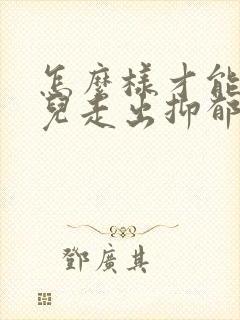 怎麼樣才能
兒走出抑郁
鄧廣其